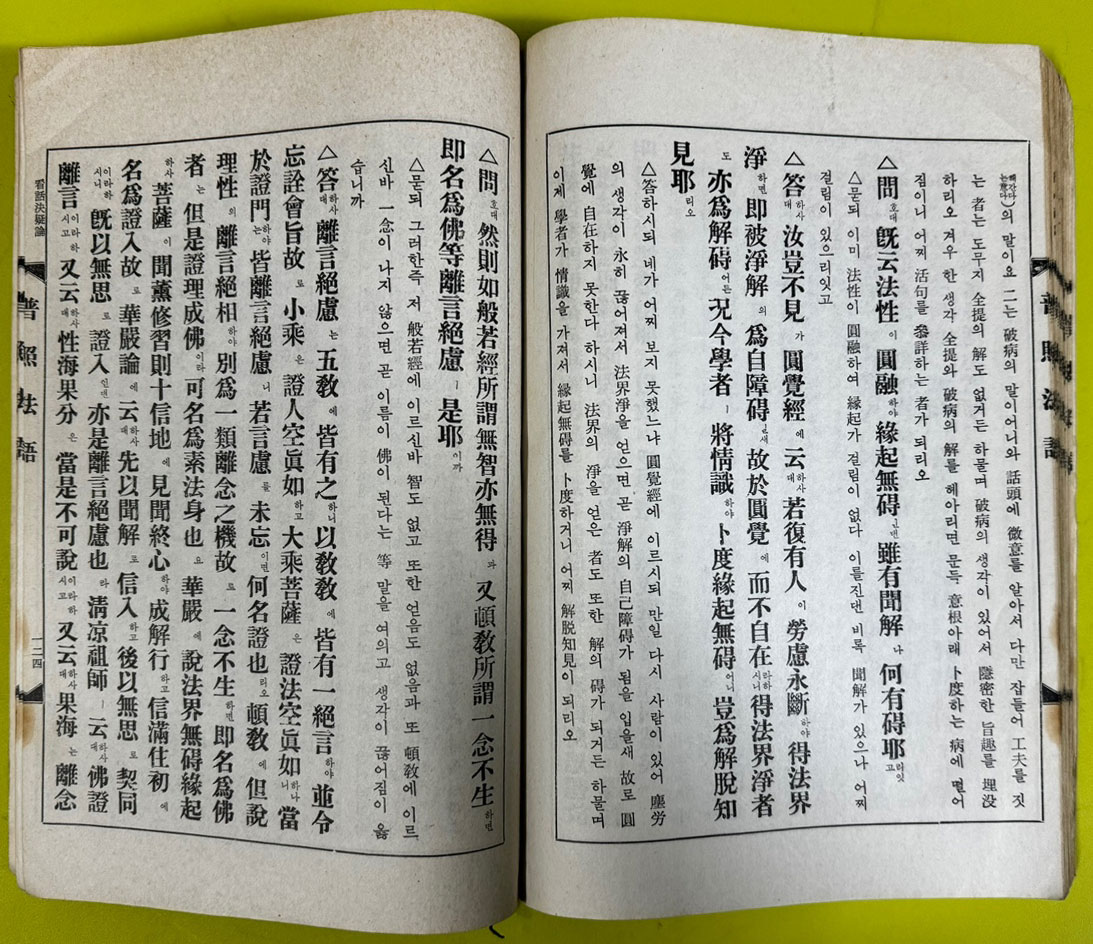 普照法語
의 말이요 二는 破病의 말이어니와 話頭에 微意를 알아서 다만 잡들어 工夫를 짓
는 者는 도무지 全提의 解도 없거든 하물며 破病의 생각이 있어서 隱密한 旨趣를 埋没
하리오 겨우 한 생각 全提와 破病의 解를 헤아리면 문득 意根아래 卜度하는 病에 떨어
짐이니 어찌 活句를 叅詳하는 者가 되리오
△問호대 旣云法性이 圓融하야 緣起無碍인댄 雖有聞解나 何有碍耶리잇고
△묻되 이미 法性이 圓融하여 緣起가 걸림이 없다 이를진댄 비록 聞解가 있으나 어찌
걸림이 있으리잇고
△答하사대 汝豈不見가 圓覺經에 云하사대 若復有人이 勞慮永斷하야 得法界
淨하면 即被淨解의 爲自障碍일새 故於圓覺에 而不自在라하시니 得法界淨者
도 亦爲解碍어든 况今學者ㅣ 將情識하야 卜度緣起無碍어니 豈爲解脫知
見耶리오
△答하시되 네가 어찌 보지 못했느냐 圓覺經에 이르시되 만일 다시 사람이 있어 塵労
의 생각이 永히 끊어져서 法界淨을 얻으면 곧 淨解의 自己障碍가 됨을 입을새 故로 圓
覺에 自在하지 못한다 하시니 法界의 淨을 얻은 者도 또한 解의 碍가 되거든 하물며
이제 學者가 情識을 가져서 緣起無碍를 卜度하거니 어찌 解脫知見이 되리오
△問호대 然則如般若經所謂無智亦無得과 又頓敎所謂一念不生하면
即名爲佛等離言絕慮ㅣ 是耶이까
△묻되 그러한즉 저 般若經에 이르신바 智도 없고 또한 얻음도 없음과 또 頓敎에 이르
신바 一念이 나지 않으면 곧 이름이 佛이 된다는 等 말을 여의고 생각이 끊어짐이 옳
습니까
△答하사대 離言絕慮는 五敎에 皆有之하니 以敎敎에 皆有一絕言하야 並令
忘詮會旨故로 小乘은 證人空眞如하고 大乘菩薩은 證法空眞如하나니 當
於證門하야는 皆離言絕慮니 若言慮를 未忘이면 何名證也리오 頓敎에 但說
理性의 離言絕相하야 別爲一類離念之機故로 一念不生하면 即名爲佛
者는 但是證理成佛이라 可名爲素法身也요 華嚴에 說法界無碍緣起
하사 菩薩이 聞薰修習則十信地에 見聞終心하야 成解行하고 信滿住初에
名爲證入故로 華嚴論에 云하사대 先以聞解로 信入하고 後以無思로 契同
이라하시니 旣以無思로 證入인댄 亦是離言絕慮也라 淸凉祖師ㅣ 云하사대 佛證
離言이라하시고 又云하사대 性海果分은 當是不可說이라하시고 又云하사대 果海는 離念
看話決疑論
普照法語
一二四